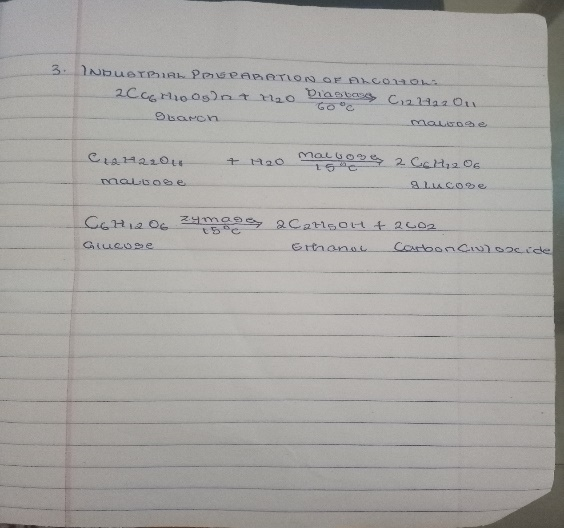 3. INDUSTRIAL PREPARATION OF ALCOHOL:
2(C6H10O5)n + H2O Diastase 60°C C12H22O11
Starch maltose
C12H22O11 + H2O maltose 15°C 2C6H12O6
maltose Glucose
C6H12O6 zymase 15°C 2C2H5OH + 2CO2
Glucose Ethanol Carbon(iv)oxide